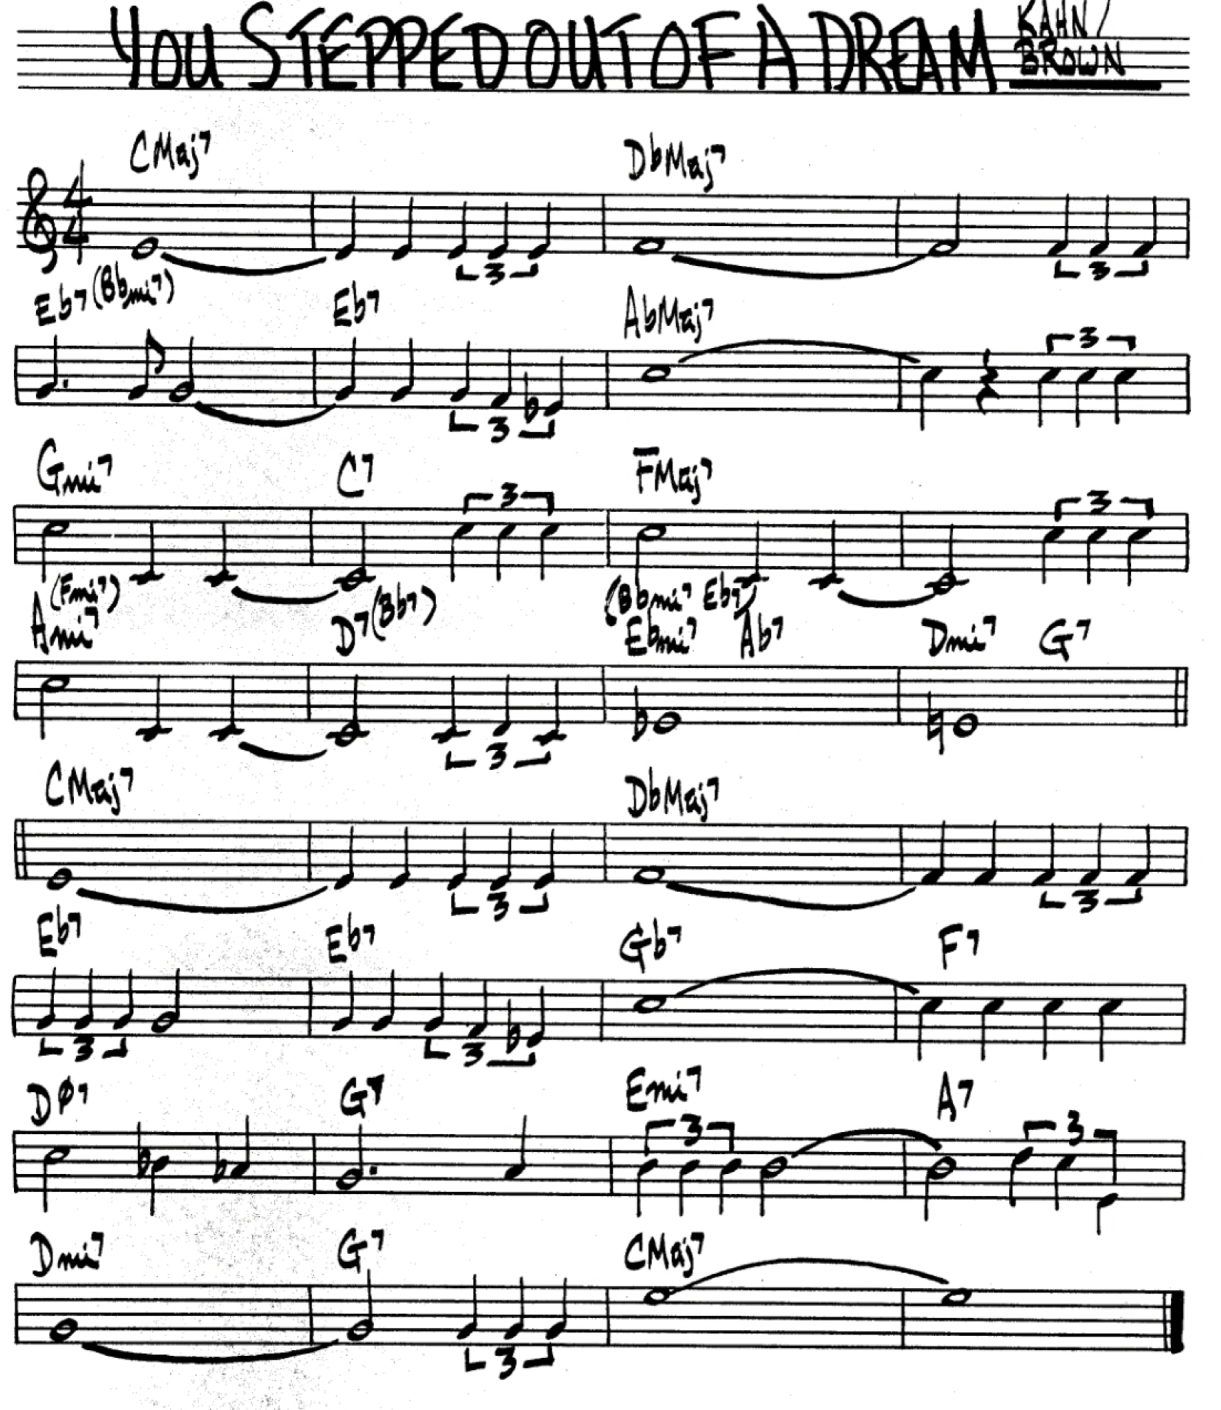 YOU STEPPED OUT OF A DREAM KAHN/
BROWN
CMaj7 DbMaj7
4
4
3 3
Eb7 (Bbmi7) Eb7 AbMaj7
3 3
Gmi7 C7 FMaj7
3 3
(Fmi7) (Bb7) (Bbmi7 Eb7)
Ami7 D7 Ebmi7 Ab7 Dmi7 G7
3
CMaj7 DbMaj7
3 3
Eb7 Eb7 Gb7 F7
3 3
DØ7 G7 Emi7 A7
3 3
Dmi7 G7 CMaj7
3